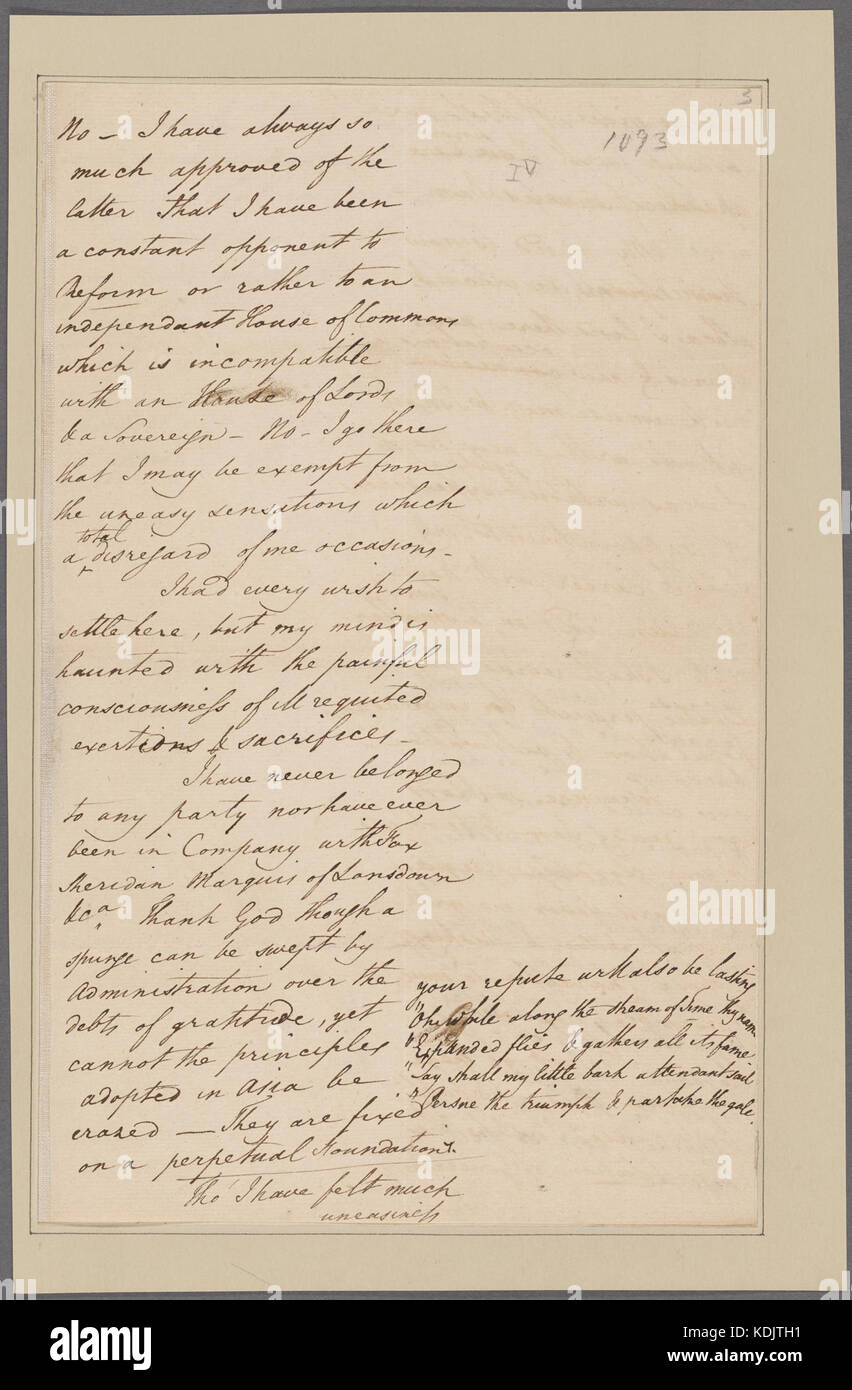 3
1093
IV
No – I have always so
much approved of the
latter that I have been
a constant opponent to
Reform or rather to an
independant House of Commons
which is incompatible
with an House of Lords
& a Sovereign – No – I go there
that I may be exempt from
the uneasy sensations which
total
a disregard of me occasions –
I had every wish to
settle here, but my mind is
haunted with the painful
consciousness of ill requited
exertions & sacrifices –
I have never belonged
to any party nor have ever
been in Company with Fox
Sheridan Marquis of Lansdown
&ca Thank God though a
spunge can be swept by
Administration over the
debts of gratitude, yet
cannot the principles
adopted in Asia be
erazed — They are fixed
on a perpetual foundation.
Tho' I have felt much
uneasiness
your repute will also be lasting
"Oh while along the stream of Time thy name
"Expanded flies & gathers all its fame
"Say shall my little bark attendant sail
"Persue the triumph & partake the gale.
alamy
alamy stock photo
Image ID: KDJTH1
www.alamy.com